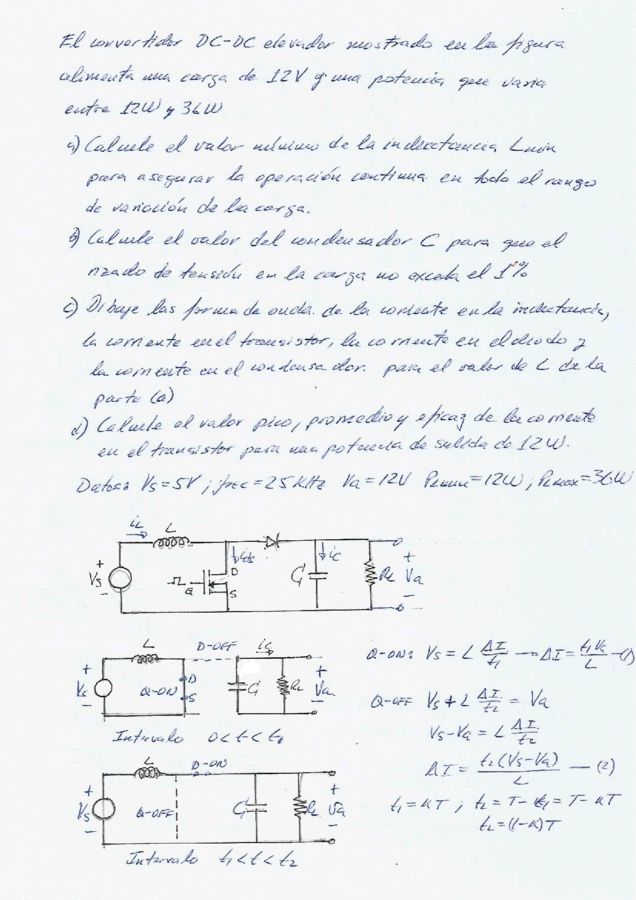 El convertidor DC-DC elevador mostrado en la figura
alimenta una carga de 12V y una potencia que varia
entre 12W y 36W
a) Calcule el valor mínimo de la inductancia Lmin
para asegurar la operación continua en todo el rango
de variación de la carga.
b) Calcule el valor del condensador C para que el
rizado de tensión en la carga no exceda el 1%
c) Dibuje las forma de onda. de la corriente en la inductancia,
la corriente en el transistor, la corriente en el diodo y
la corriente en el condensador. para el valor de L de la
parte (a)
d) Calcule el valor pico, promedio y eficaz de la corriente
en el transistor para una potencia de salida de 12W.
Datos: Vs=5V ; frec=25KHz Va=12V PLmin=12W, PLmax=36W
iL L
+ Vs - G D S ids ic C RL + Va -
L D-OFF ic
+ Vs - Q-ON D S C RL + Va -
Intervalo 0<t<t1
Q-ON: Vs = L ΔI/t1 → ΔI = t1Vs/L —(1)
Q-OFF Vs + L ΔI/t2 = Va
Vs-Va = L ΔI/t2
ΔI = t2(Vs-Va)/L —(2)
t1=KT ; t2=T-t1=T-KT
t2=(1-K)T
L D-ON
+ Vs - Q-OFF C RL + Va -
Intervalo t1<t<t2